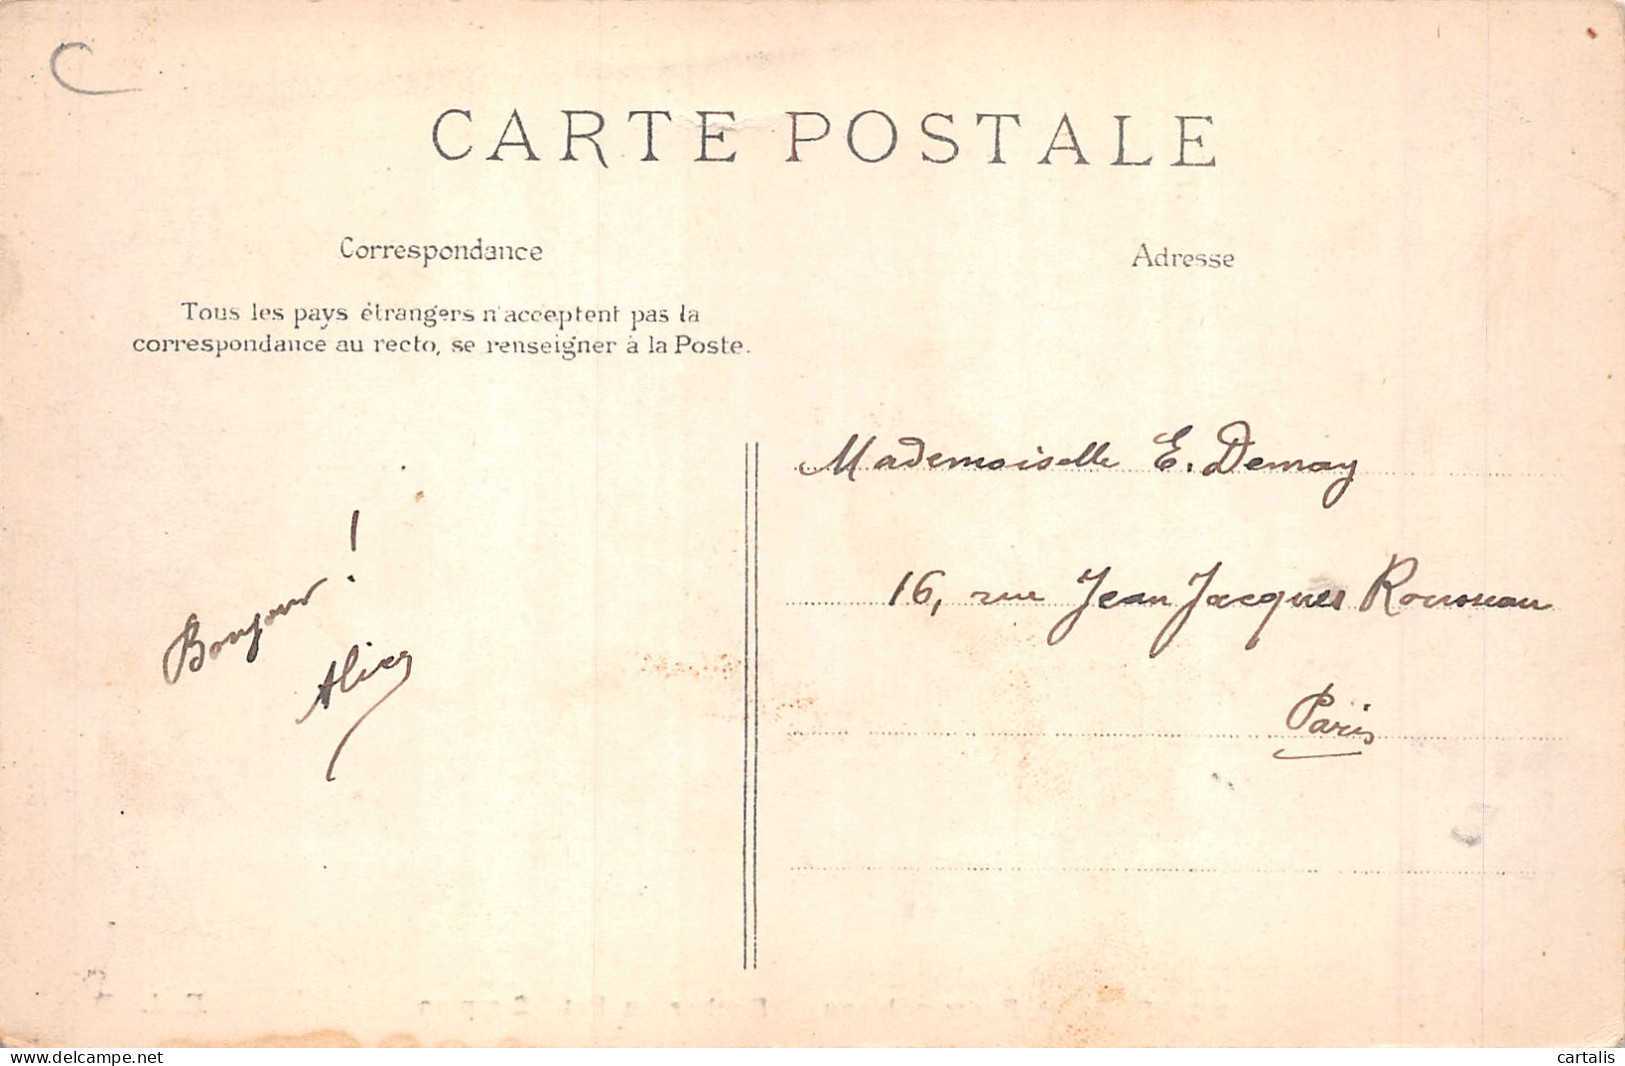 CARTE POSTALE
Correspondance
Tous les pays étrangers n'acceptent pas la
correspondance au recto, se renseigner à la Poste.
Bonjour !
Alice
Adresse
Mademoiselle E. Demay
16, rue Jean Jacques Rousseau
Paris
delcampe.net
cartalis